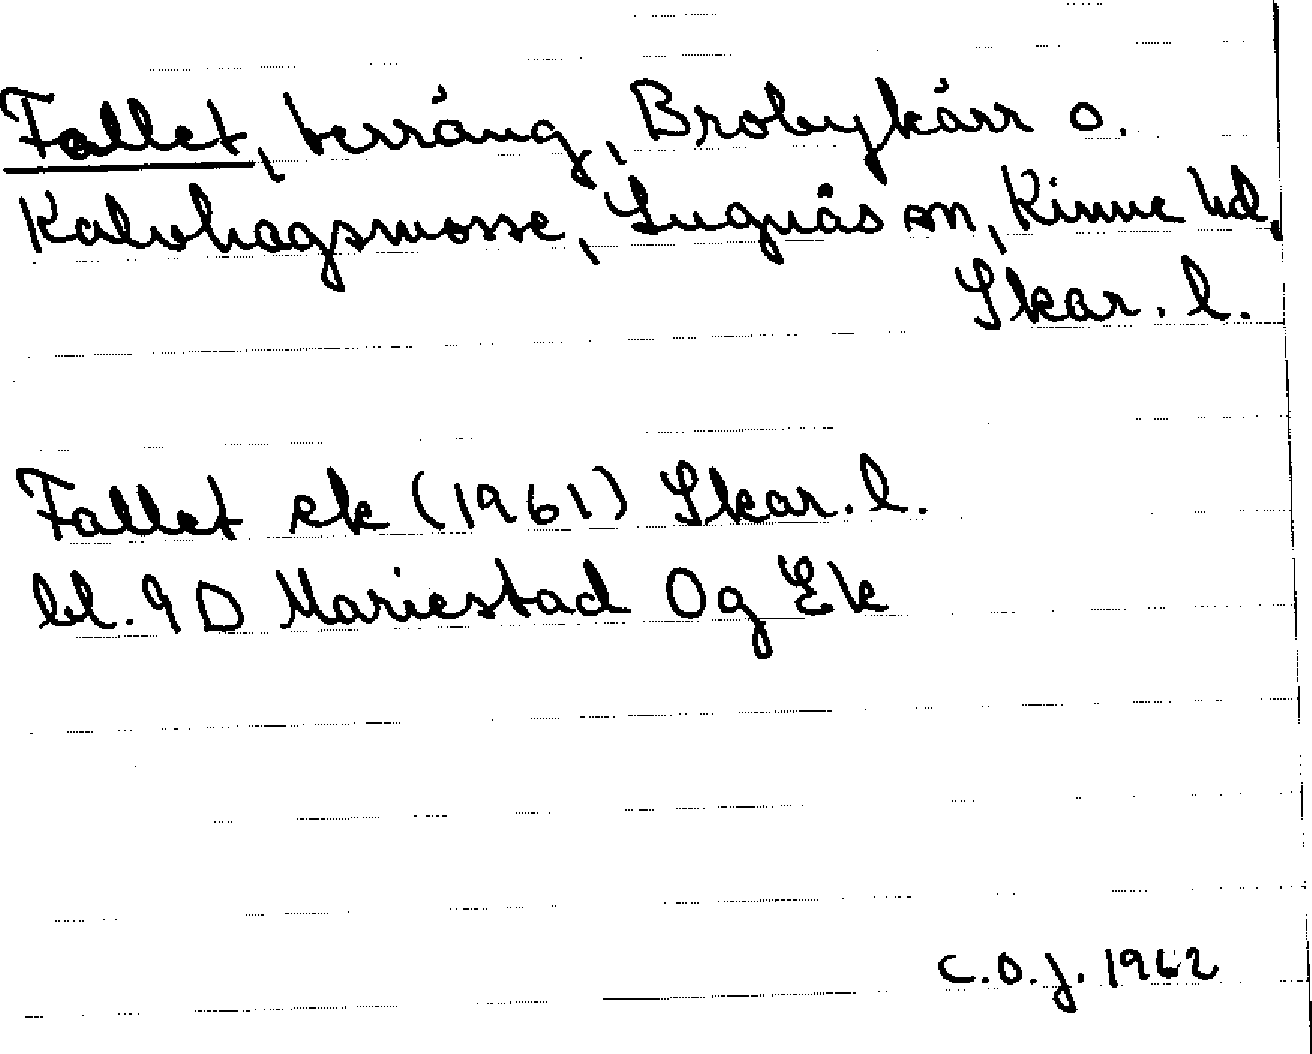 Fallet, terräng, Brobykärr o.
Kalvhagsmosse, Lugnås sn, Kinne hd,
Skar. l.
Fallet ek (1961) Skar. l.
bl. 9D Mariestad 0g Ek
C.O.J. 1962